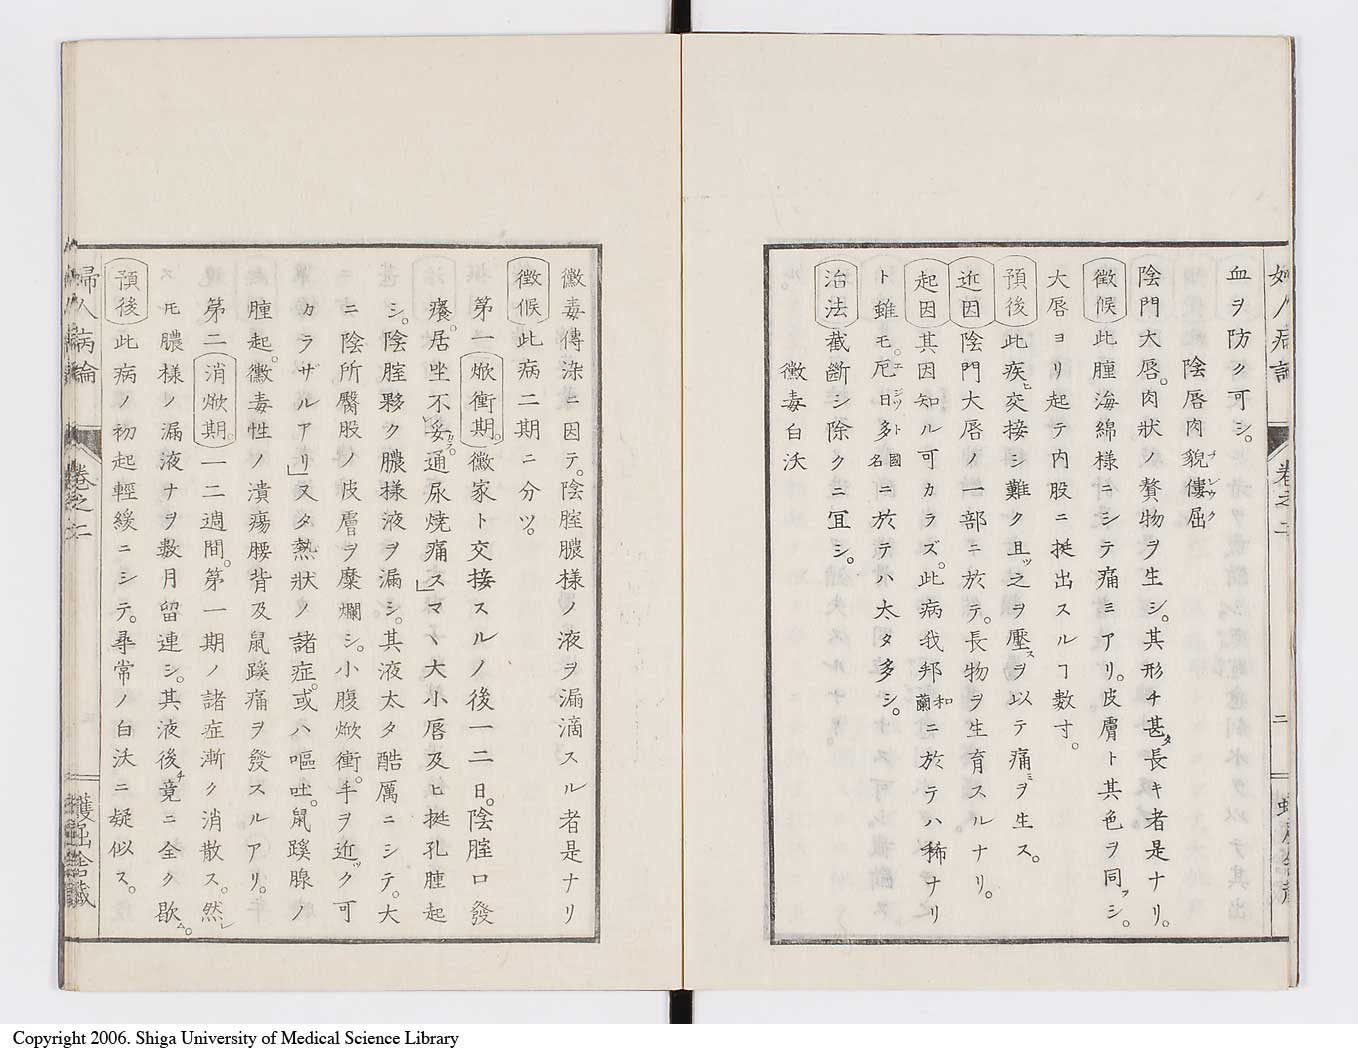 血ヲ防ク可シ。
陰唇肉貌僂屈
陰門大唇。肉狀ノ贅物ヲ生シ。其形チ甚タ長キ者是ナリ。
徴候 此腫海綿様ニシテ痛ミアリ。皮膚ト其色ヲ同フシ。
大唇ヨリ起テ内股ニ挺出スルヿ數寸。
預後 此疾ヒ交接シ難ク且ツ之ヲ壓スヲ以テ痛ミヲ生ス。
近因 陰門大唇ノ一部ニ於テ。長物ヲ生育スルナリ。
起因 其因知ル可カラズ。此病我邦和蘭ニ於テハ稀ナリ
ト雖モ。厄日多國名ニ於テハ太タ多シ。
治法 截斷シ除クニ冝シ。
黴毒白沃
黴毒傳染ニ因テ。陰腟膿様ノ液ヲ漏滴スル者是ナリ
徴候 此病二期ニ分ツ。
第一焮衝期。黴家ト交接スルノ後一二日。陰腟口發
癢。居坐不妥カラ。通尿焼痛ス」マヽ大小唇及ヒ挺孔腫起
シ。陰腟夥ク膿様液ヲ漏シ。其液太タ酷厲ニシテ。大
ニ陰所臀股ノ皮膚ヲ糜爛シ。小腹焮衝。手ヲ近ツク可
カラザルアリ」又タ熱狀ノ諸症。或ハ嘔吐。鼠蹊腺ノ
腫起。黴毒性ノ潰瘍腰背及鼠蹊痛ヲ發スルアリ。
第二消焮期。一二週間。第一期ノ諸症漸ク消散ス。然レ
𪜈膿様ノ漏液ナヲ數月留連シ。其液後チ竟ニ全ク歇ム。
預後 此病ノ初起輕緩ニシテ。尋常ノ白沃ニ疑似ス。
婦人病論 卷之二